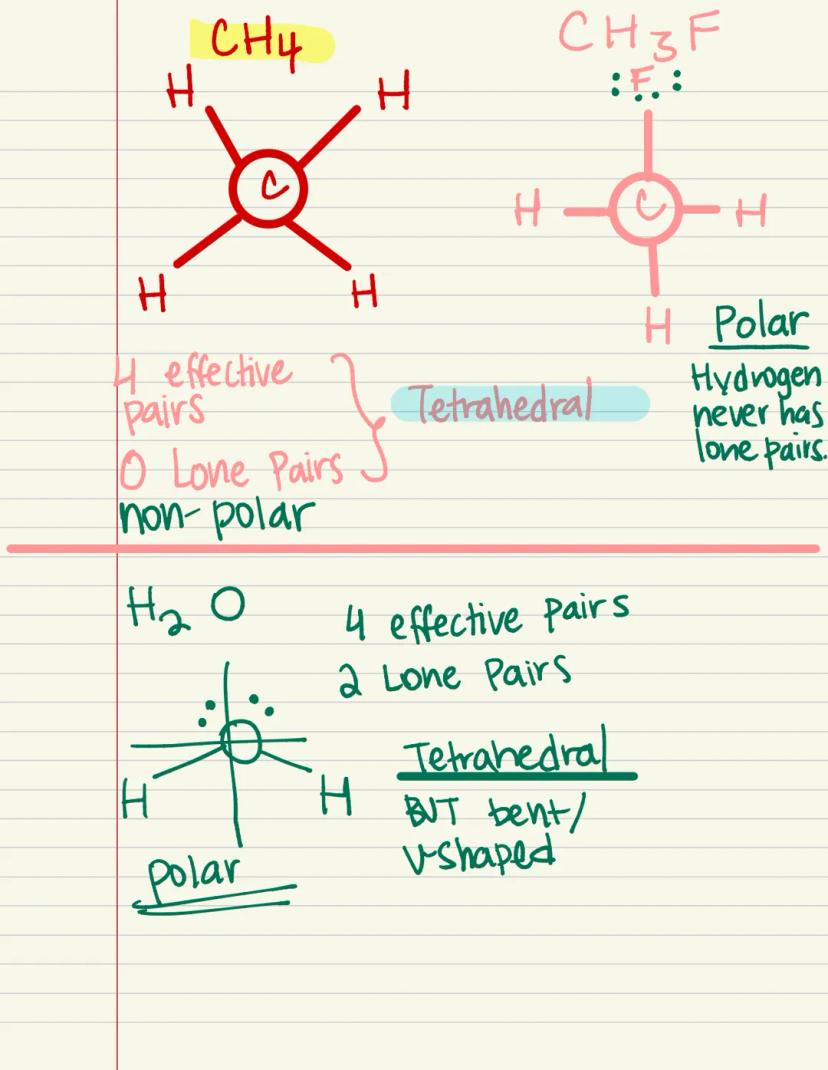 CH4
H H
C
H H
CH3F
:F:
H C H
H
Polar
Hydrogen
never has
lone pairs.
4 effective
pairs
0 Lone Pairs
Tetrahedral
non-polar
H2O
4 effective pairs
2 Lone Pairs
H H
polar
Tetrahedral
BUT bent/
V-shaped